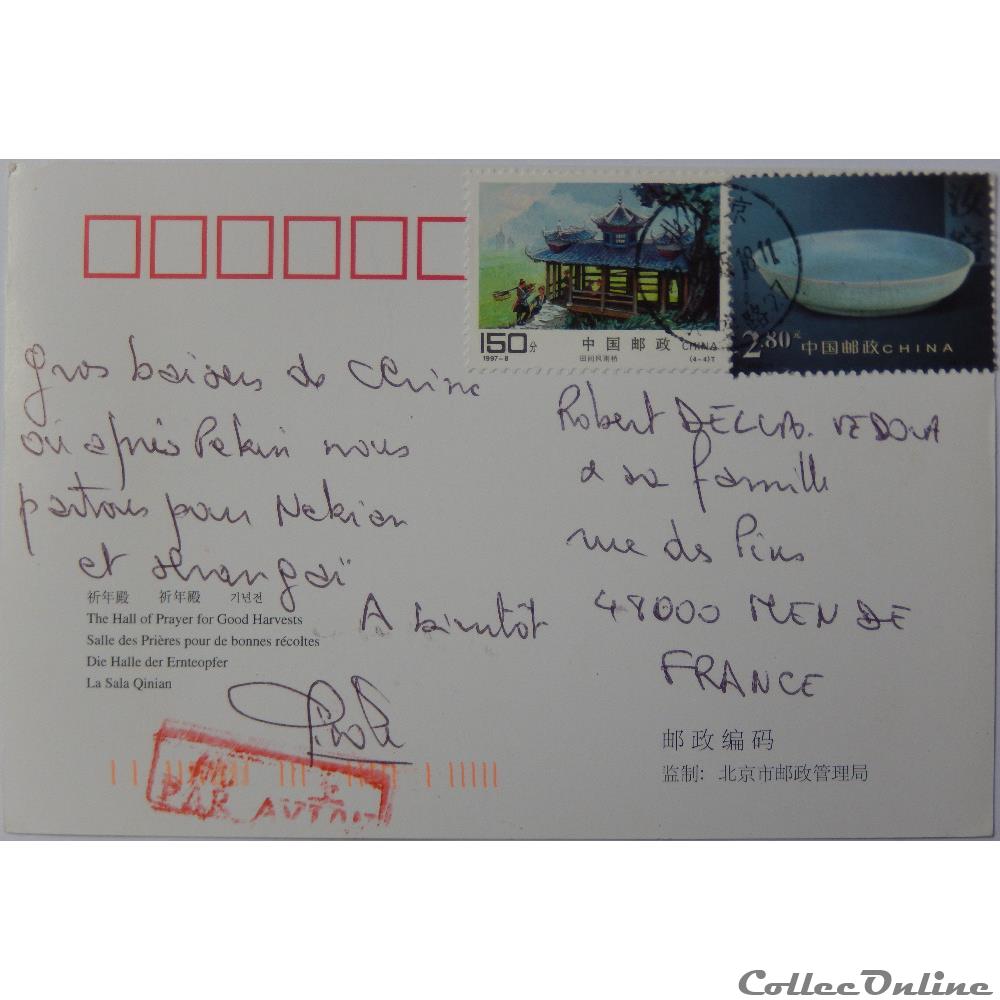 150分
中国邮政 CHINA
1997-8 田间风雨桥 (4-4)T
京
18.11
2.80元 中国邮政 CHINA
汝
Gros baisers de Chine
où après Pekin nous
partons pour
et Shangaï
A bientôt
Robert DELLA. VEDOVA
& sa famille
rue des Pins
48000 MENDE
FRANCE
祈年殿 祈年殿 기년전
The Hall of Prayer for Good Harvests
Salle des Prières pour de bonnes récoltes
Die Halle der Ernteopfer
La Sala Qinian
PAR AVION
邮政编码
监制: 北京市邮政管理局
CollecOnline